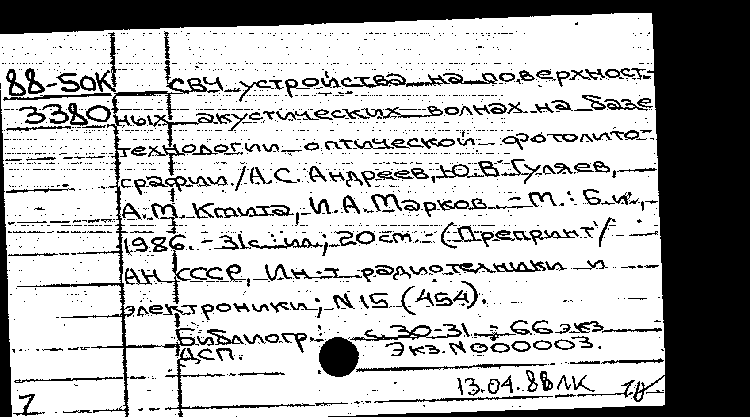 88-50К СВЧ устройства на поверхност-
3380 ных акустических волнах на базе
технологии оптической фотолито-
графии/А.С. Андреев, Ю.В. Гуляев,
А.М. Кмита, И.А. Марков. - М.: Б.и.,
1986. - 31с.: ил.; 20 см. - (Препринт/
АН СССР, Ин-т радиотехники и
электроники; N 15 (454).
Библиогр.: с. 30-31 : 66 экз
ДСП. Экз. N 000003.
13.04.88 ЛК
7